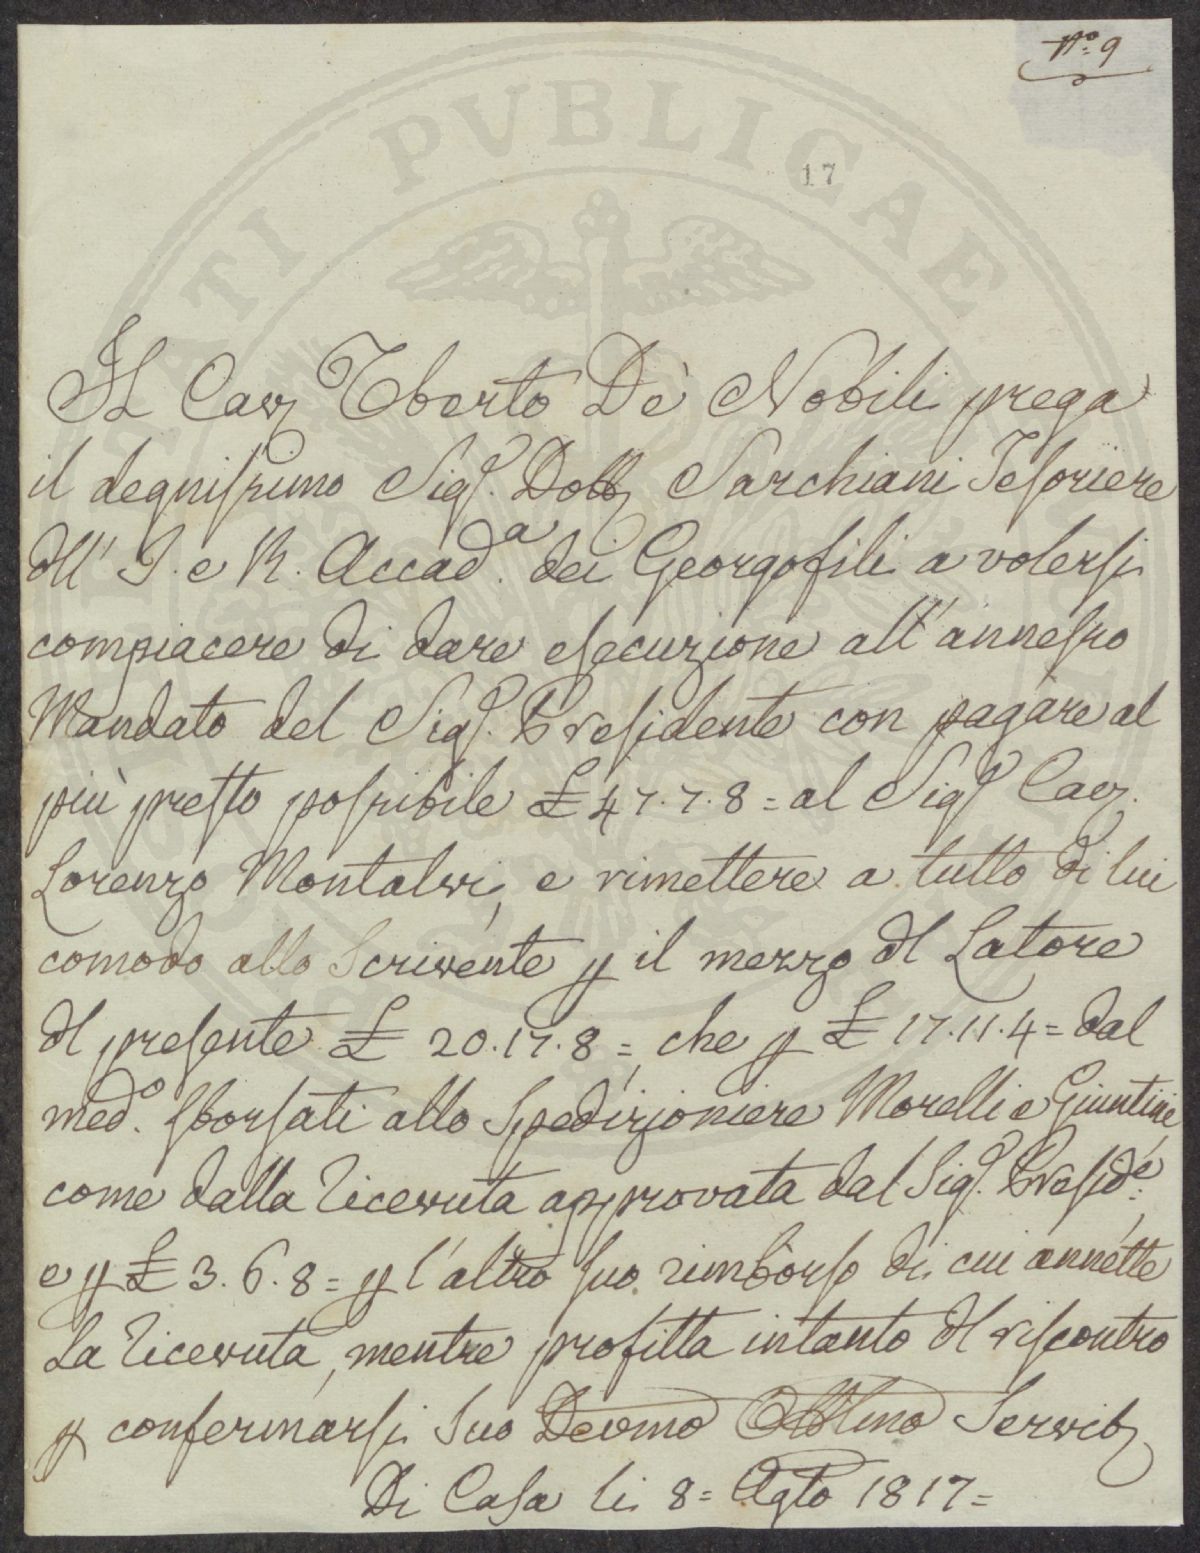 N.o 9
PUBLICAE
17
Il Cav. Uberto De' Nobili prega
il degnissimo Sig.r Dott. Sarchiani Tesoriere
dell' I. e R. Accad.a dei Georgofili a volersi
compiacere di dare esecuzione all'annesso
Mandato del Sig.r Presidente con pagare al
più presto possibile £ 47.7.8 = al Sig.r Cav.
Lorenzo Montalvi, e rimettere a tutto di lui
comodo allo Scrivente p il mezzo del Latore
del presente £ 20.17.8 =, che p £ 17.11.4 = dal
med.o sborsati allo Spedizioniere Morelli e Giuntini,
come dalla ricevuta approvata dal Sig.r Presid.e,
e p £ 3.6.8 = p l'altro suo rimborso di cui annette
la ricevuta, mentre profitta intanto del riscontro
p confermarsi Suo Devmo Obblmo Servit.
Di Casa li 8 = Agto 1817 =